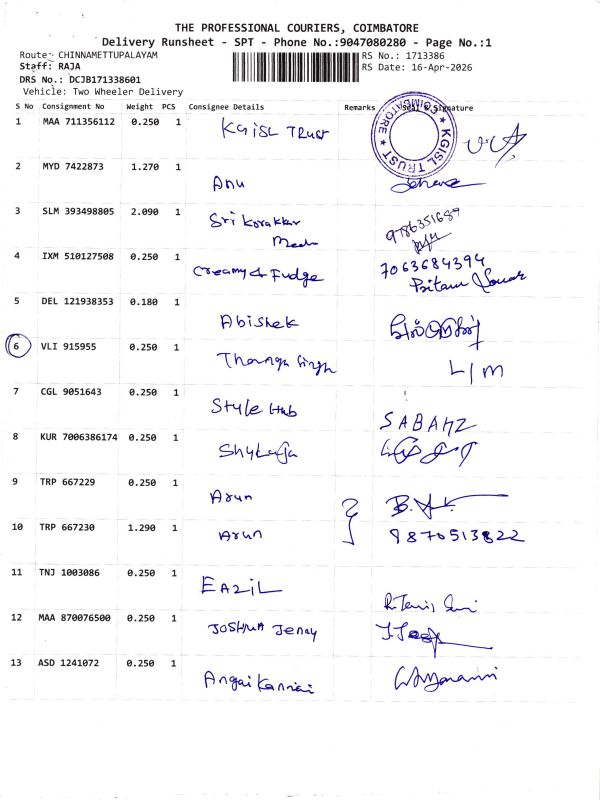 THE PROFESSIONAL COURIERS, COIMBATORE
Delivery Runsheet - SPT - Phone No.:9047080280 - Page No.:1
Route: CHINNAMETTUPALAYAM
Staff: RAJA
DRS No.: DCJB171338601
Vehicle: Two Wheeler Delivery
RS No.: 1713386
RS Date: 16-Apr-2026
S No Consignment No Weight PCS Consignee Details Remarks Seal & Signature
1 MAA 711356112 0.250 1 KGISL Trust
KGISL TRUST COIMBATORE
2 MYD 7422873 1.270 1 Anu
3 SLM 393498805 2.090 1 Sri Korakkar 9786351689
4 IXM 510127508 0.250 1 Creamy & Fudge 7063684394
Pritam
5 DEL 121938353 0.180 1 Abishek
6 VLI 915955 0.250 1 Thanga Singh L/M
7 CGL 9051643 0.250 1 Style Hub
8 KUR 7006386174 0.250 1
9 TRP 667229 0.250 1 Arun
10 TRP 667230 1.290 1 Arun 9870513822
11 TNJ 1003086 0.250 1 EAZIL
12 MAA 870076500 0.250 1 JOSHUA Jenoy
13 ASD 1241072 0.250 1